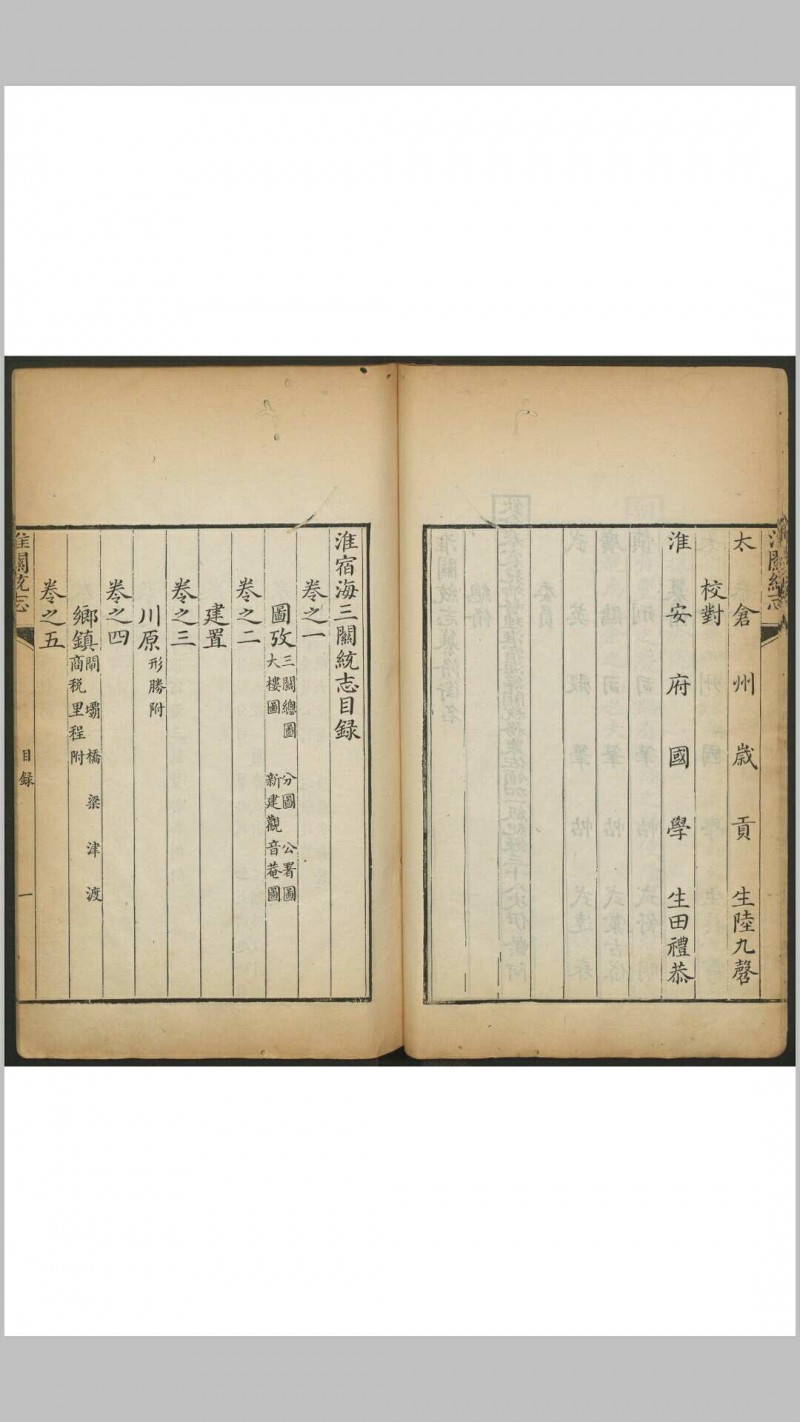 太倉州歲貢生陸九磬
校對
淮安府國學生田禮恭
淮宿海三關統志目録
卷之一
圖攷 三關總圖 分圖 公署圖
大樓圖 新建觀音菴圖
卷之二
建置
卷之三
川原 形勝附
卷之四
鄉鎮 閘壩橋梁津渡
商税里程附
卷之五
淮關統志
目録
一